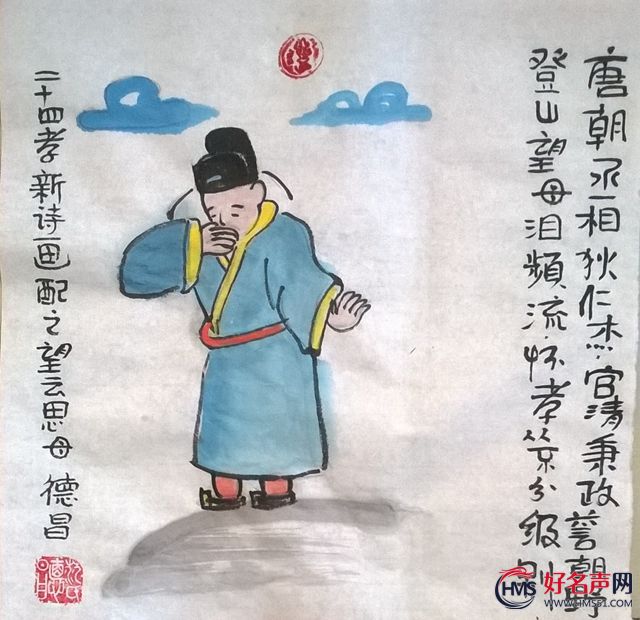 唐朝丞相狄仁杰官清秉政誉朝野
登山望母泪频流怀孝分级别
二十四孝新诗画配之望云思母 德昌
HMS 好名声网
WWW.HMS51.COM